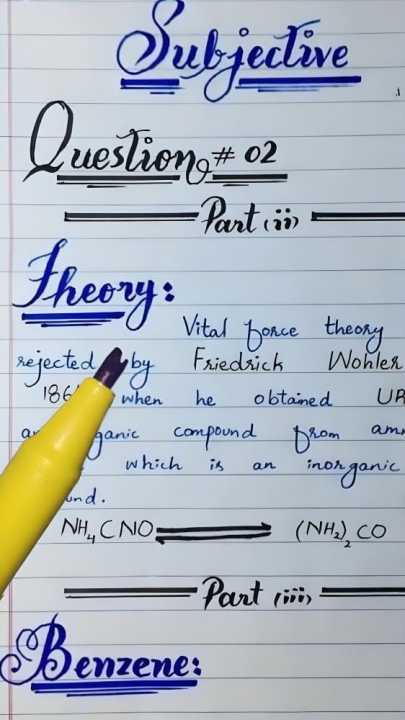 Subjective
Question # 02
Part (ii)
Theory:
Vital force theory
rejected by Friedrick Wohler
when he obtained UR
organic compound from am
which is an inorganic
NH4CNO ⇌ (NH2)2CO
Part (iii)
Benzene: